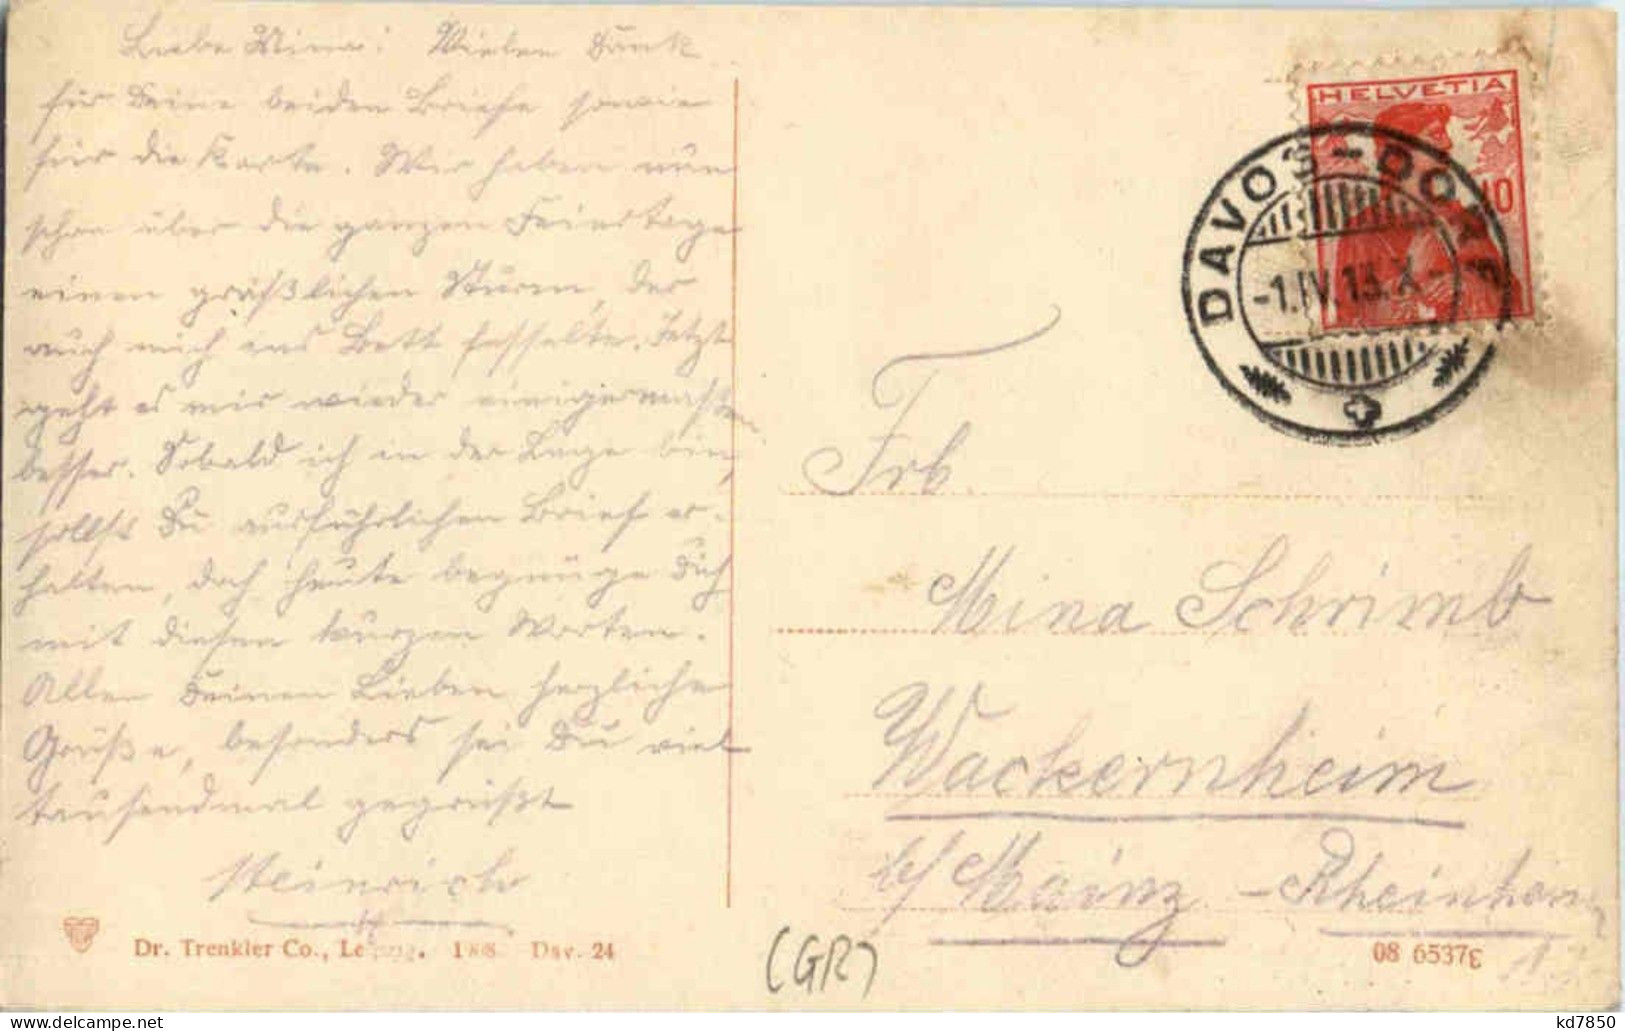 Liebe Mina! Vielen Dank
für Deine beiden Briefe sowie
für die Karte. Wir haben nun
schon über die ganzen Feiertage
einen gräßlichen Sturm, der
auch mich ans Bett fesselte. Jetzt
geht es mir wieder einigermaßen
besser. Sobald ich in der Lage bin,
sollst Du ausführlichen Brief er-
halten, doch heute begnüge Dich
mit diesen kurzen Worten.
Allen Deinen Lieben herzliche
Grüße, besonders sei Du viel
tausendmal gegrüßt
Heinrich
Dr. Trenkler Co., Leipzig. 1908 Dav. 24
HELVETIA
10
DAVOS-DORF
-1.IV.13.X-
Frl.
Mina Schrimb
Wackernheim
b/ Mainz -Rheinhessen
08 6537
(GR)
kd7850